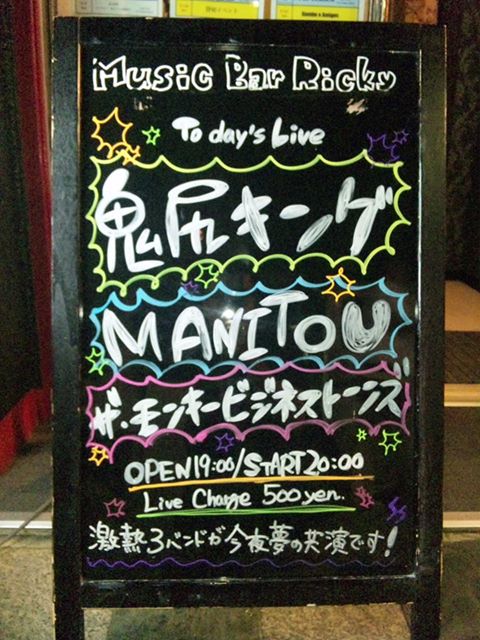 Music Bar Ricky
Today's Live
鬼尻キング
MANITOU
ザ・モンキービジネストーンズ
OPEN 19:00/START 20:00
Live Charge 500yen.
激熱3バンドが今夜夢の共演です!